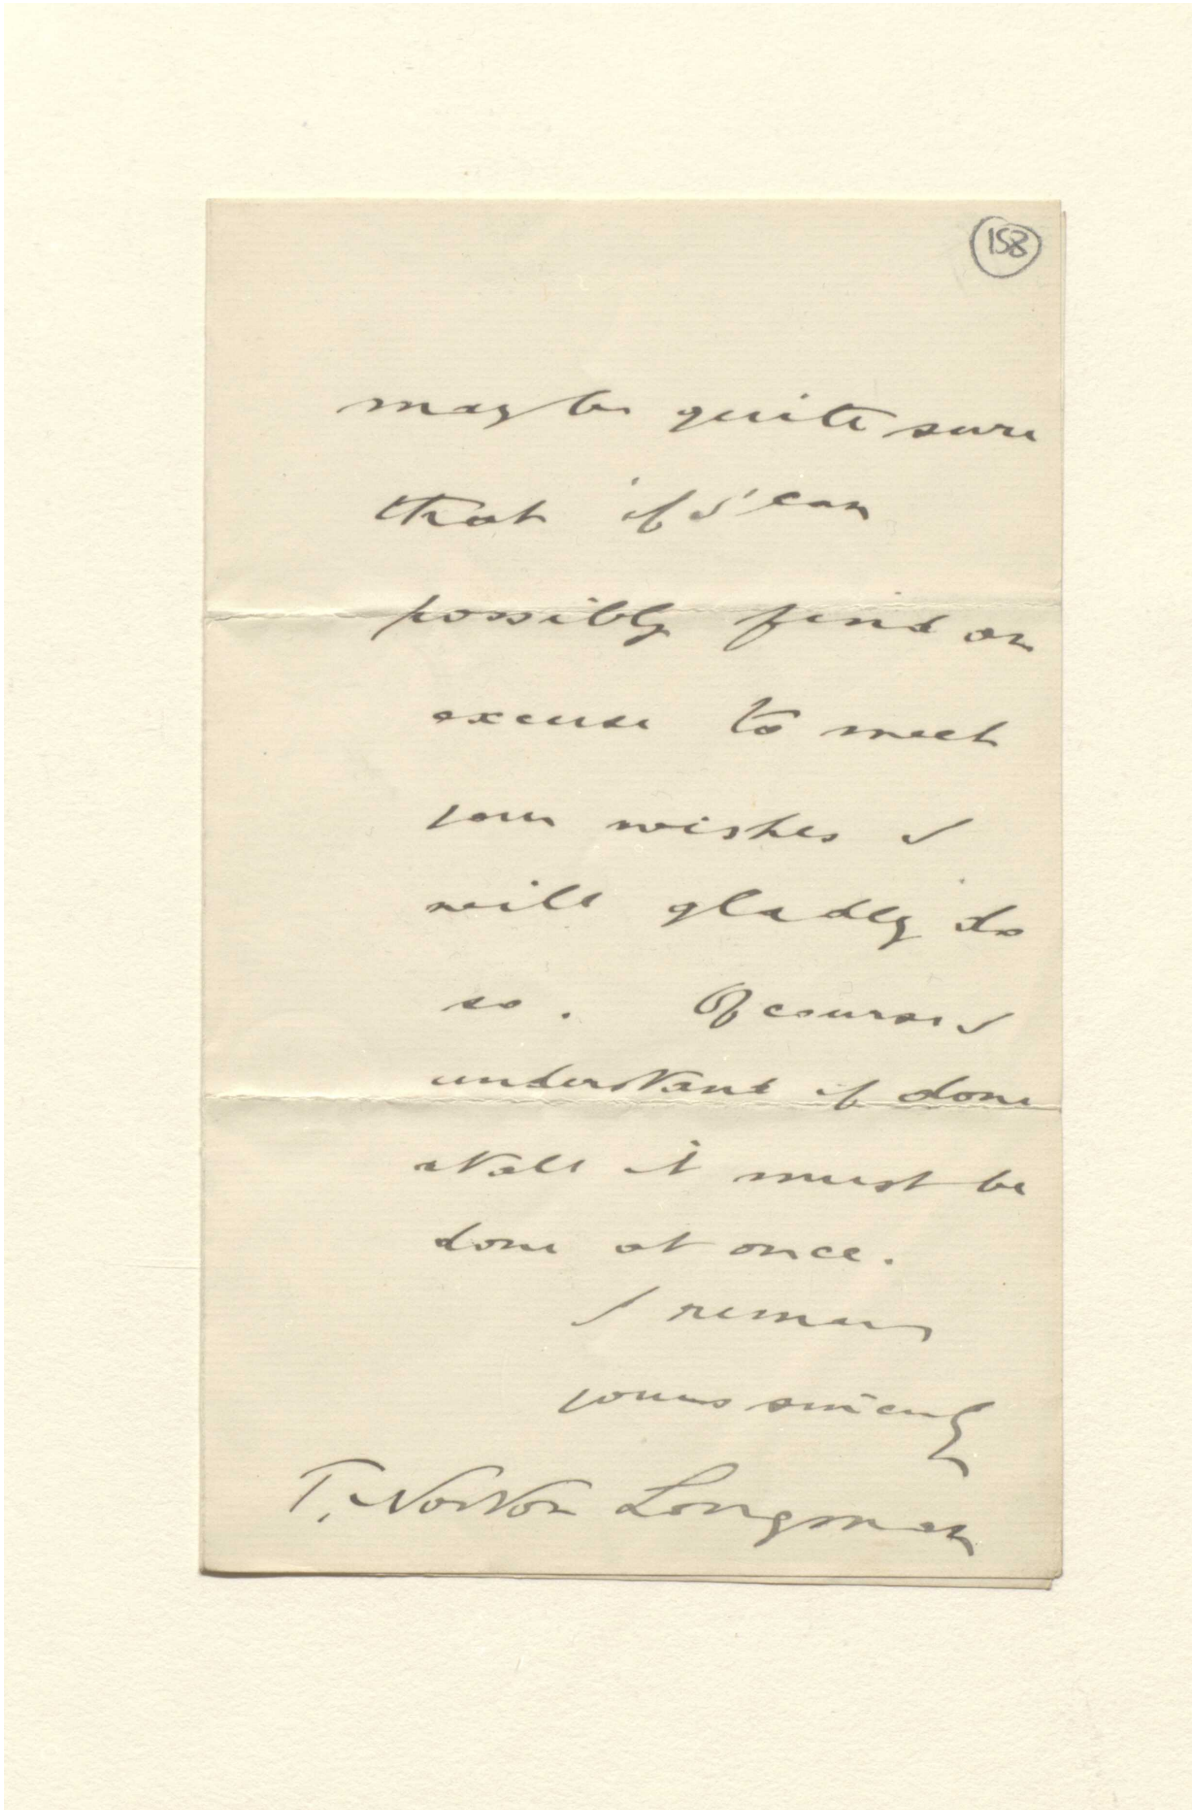 158
may be quite sure
that if I can
possibly find an
excuse to meet
your wishes I
will gladly do
so. Of course I
understand if done
at all it must be
done at once.
I remain
yours sincerely
T. Norton Longman